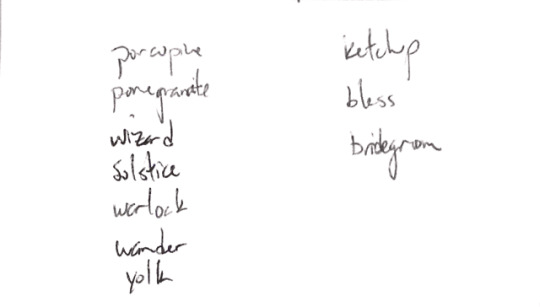 porcupine
pomegranate
wizard
solstice
warlock
wander
yolk
ketchup
bless
bridegroom